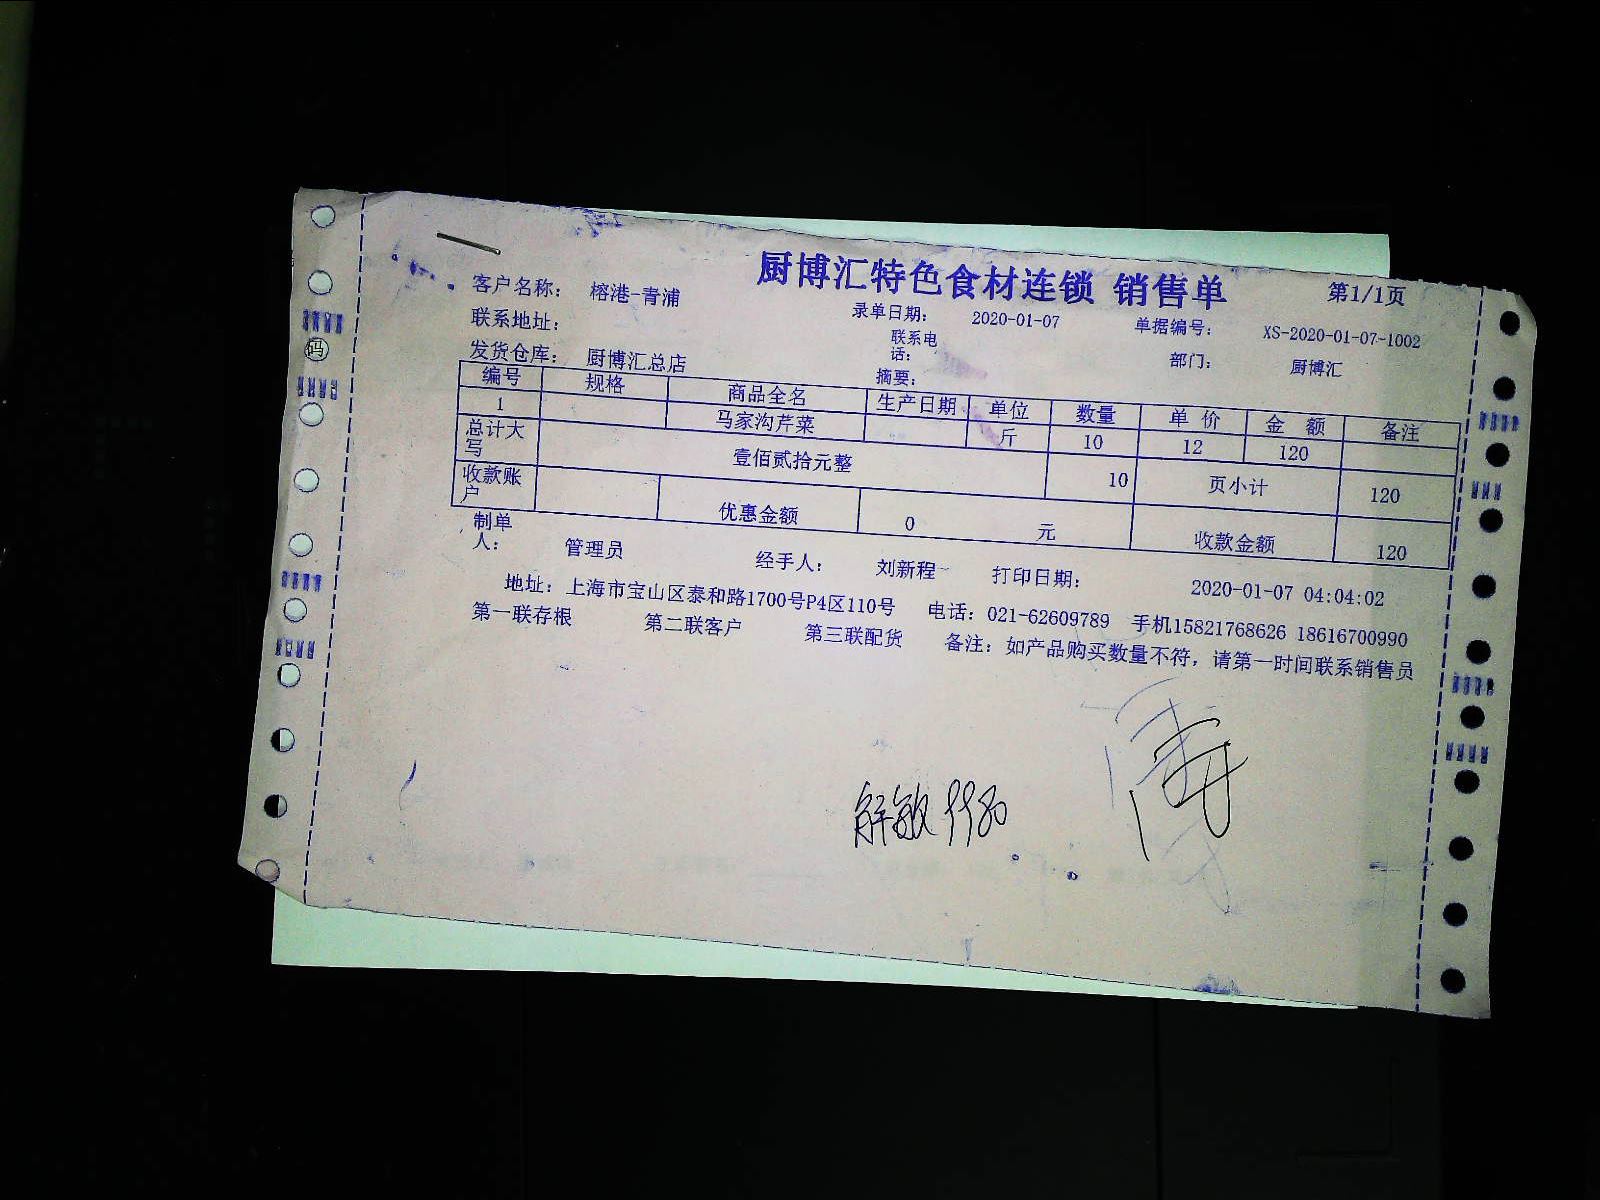 厨博汇特色食材连锁 销售单 第1/1页
客户名称： 榕港-青浦 录单日期： 2020-01-07 单据编号： XS-2020-01-07-1002
联系地址： 联系电话： 部门： 厨博汇
发货仓库： 厨博汇总店 摘要：
编号 规格 商品全名 生产日期 单位 数量 单 价 金 额 备注
1 马家沟芹菜 斤 10 12 120
总计大写 壹佰贰拾元整 10 页小计 120
收款账户 优惠金额 0 元 收款金额 120
制单人： 管理员 经手人： 刘新程 打印日期： 2020-01-07 04:04:02
地址：上海市宝山区泰和路1700号P4区110号 电话：021-62609789 手机15821768626 18616700990
第一联存根 第二联客户 第三联配货 备注：如产品购买数量不符，请第一时间联系销售员
码
解敏